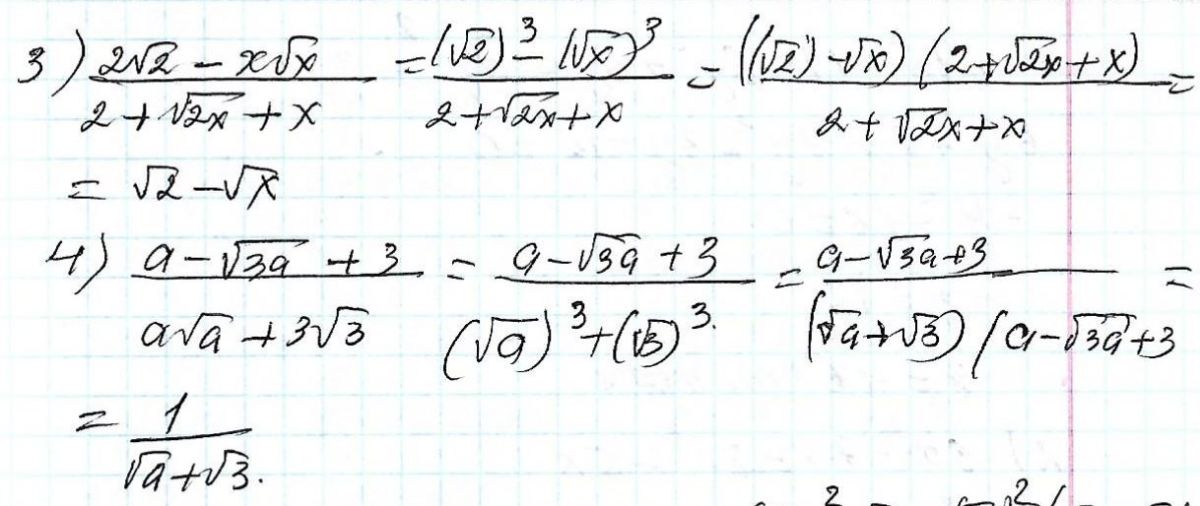 3) (2√2 − x√x)/(2 + √2x + x) = ((√2)³ − (√x)³)/(2 + √2x + x) = (((√2) − √x) (2 + √2x + x))/(2 + √2x + x) =
= √2 − √x
4) (a − √3a + 3)/(a√a + 3√3) = (a − √3a + 3)/((√a)³ + (√3)³) = (a − √3a + 3)/((√a + √3) (a − √3a + 3) =
= 1/(√a + √3).